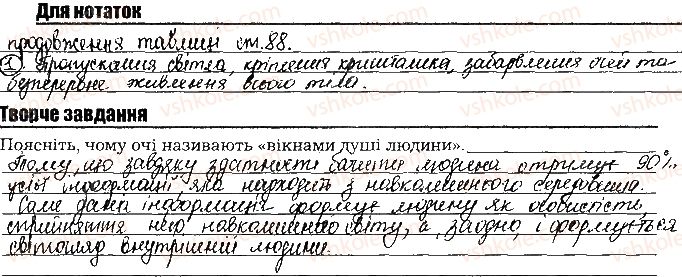 Для нотаток
продовження таблиці ст.88.
① Пропускання світла, кріплення кришталика, забарвлення очей та
безперервне живлення всього тіла.
Творче завдання
Поясніть, чому очі називають «вікнами душі людини».
Тому, що завдяку здатності бачити людина отримує 90%
усієї інформації яка надходить з навколишнього середовища.
Саме дана інформація формує людину як особистість,
сприйняття нею навколишнього світу, а заодно і формується
світогляд внутрішній людини.